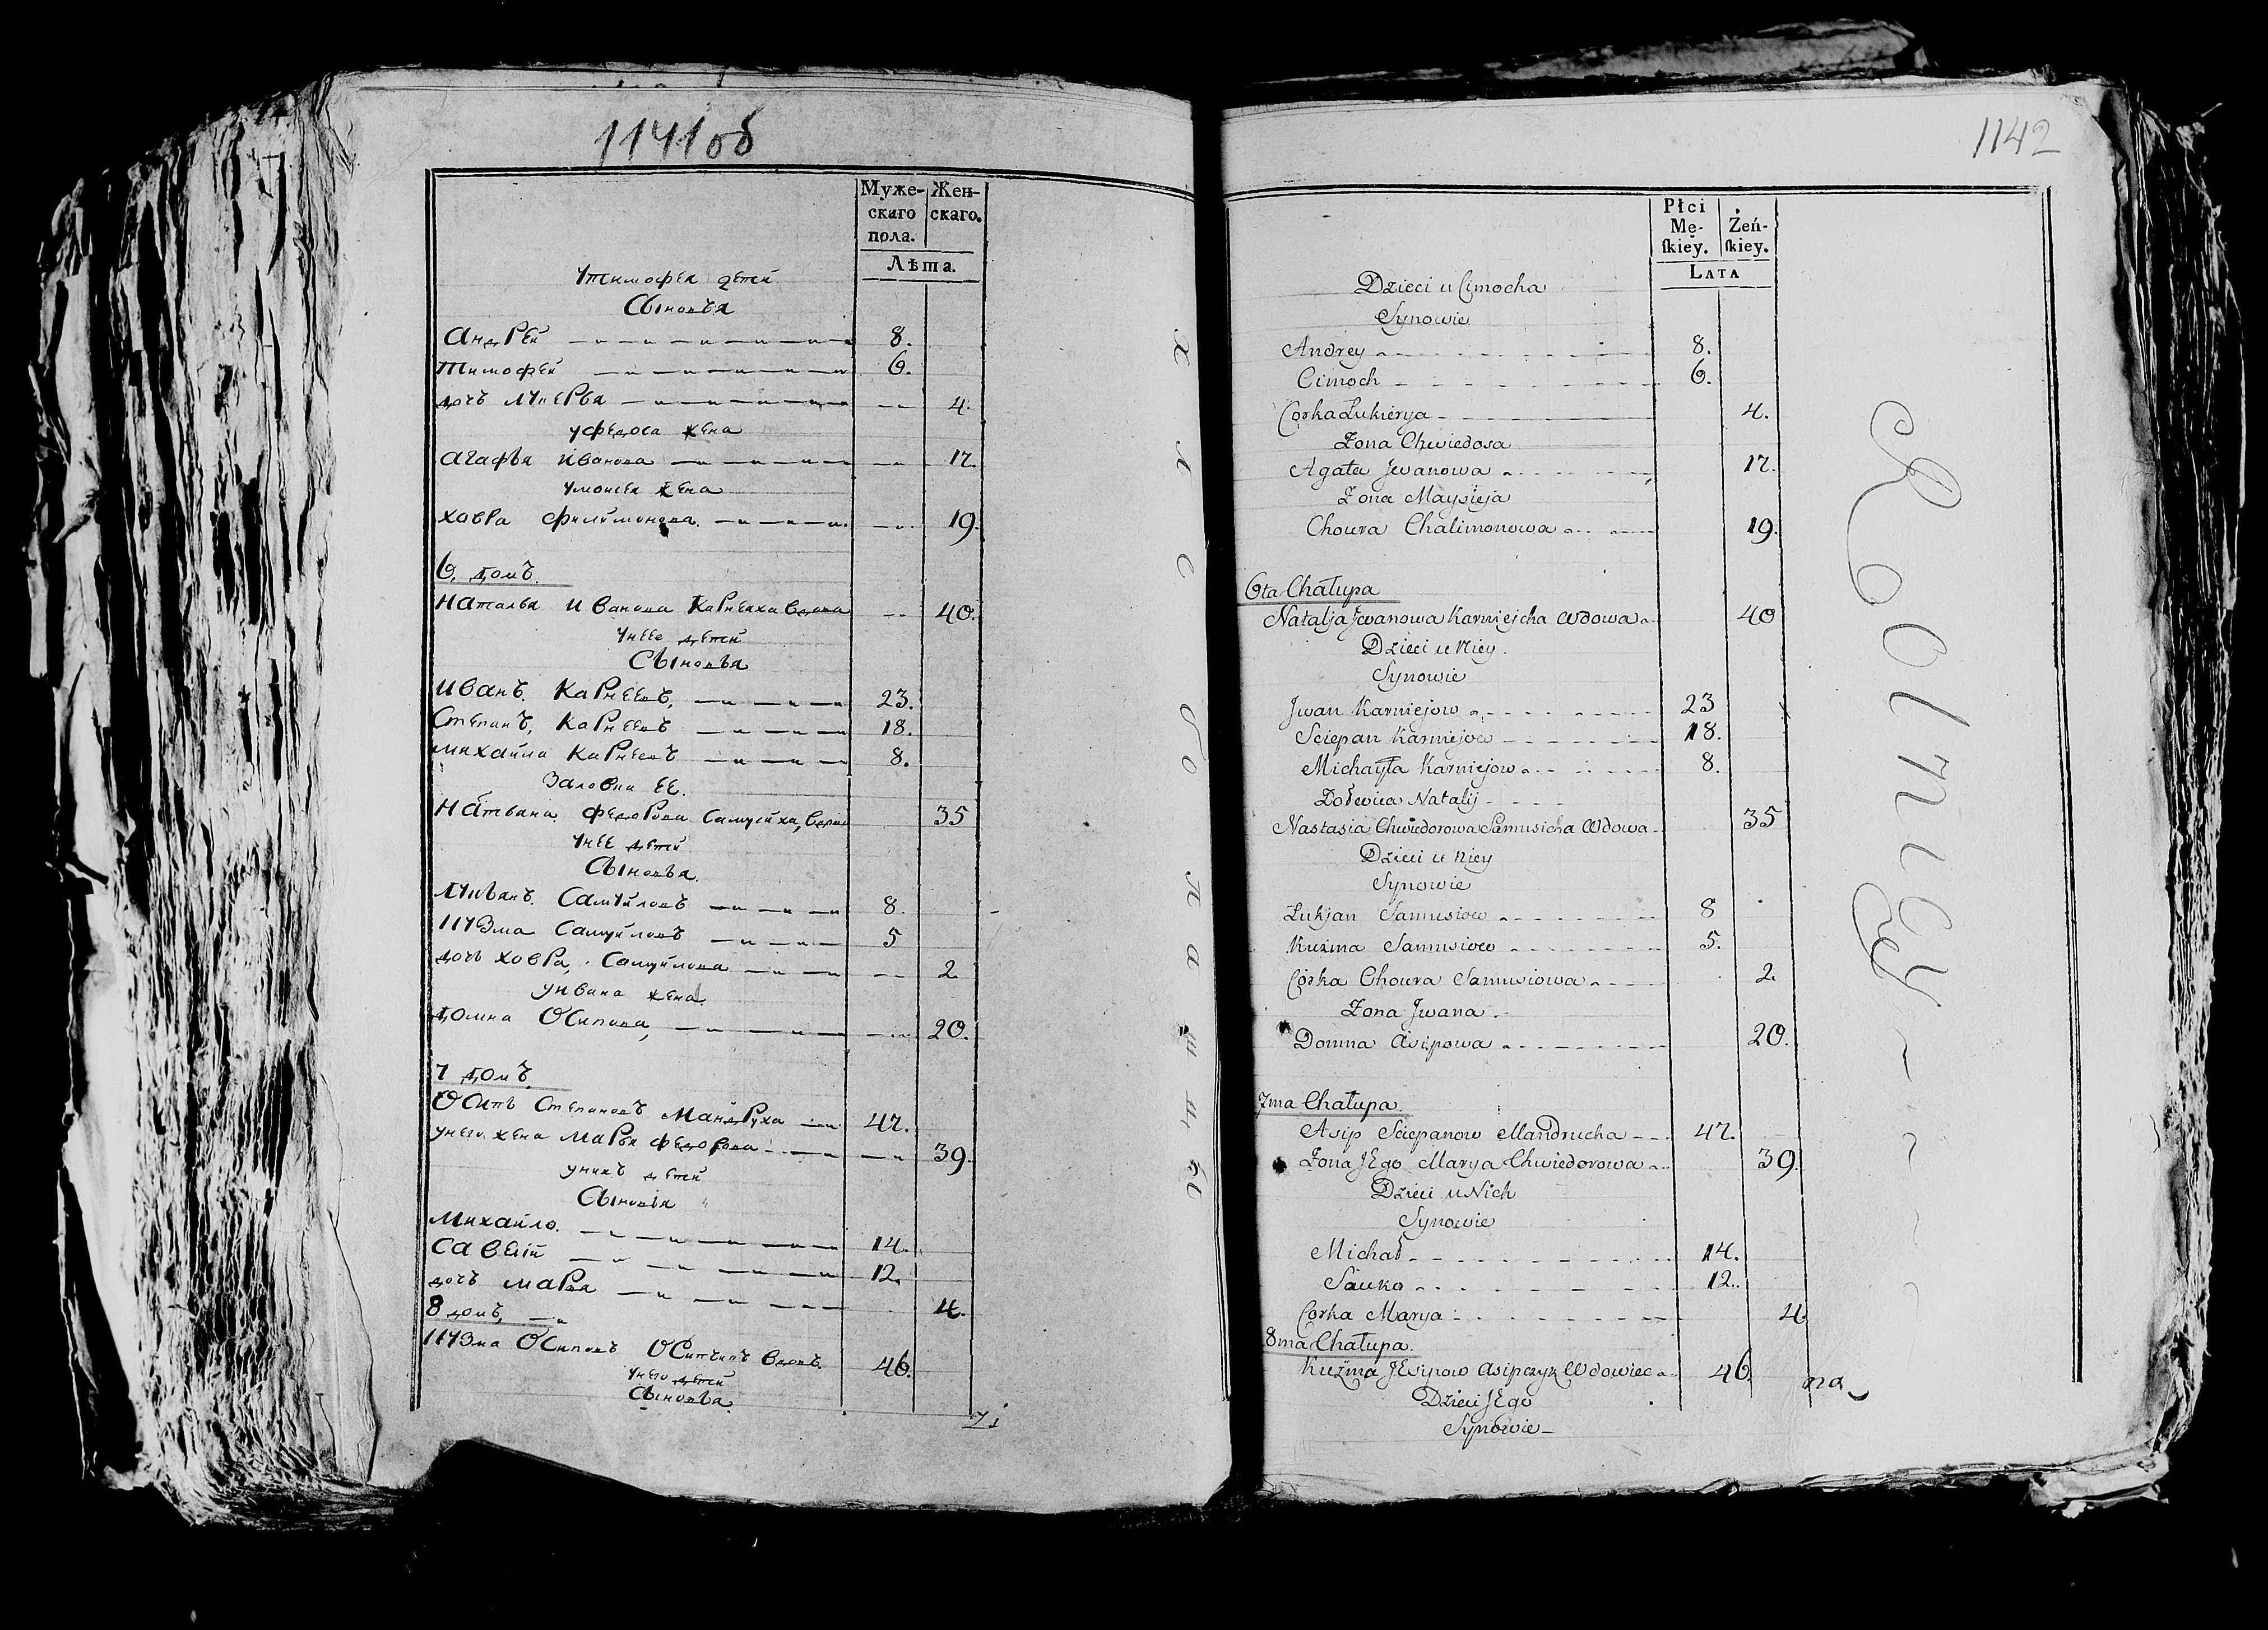 1141об
Муже-
скаго
пола.
Жен-
скаго.
Лѣта.
Утимофея детей
Сыновья
Андрей 8.
Тимофей 6.
дочь Лукерья 4.
уФедоса жена
Агафья Иванова 17.
умоисея жена
Ховра Филимонова 19.
6. домъ.
Наталья Иванова Карнеиха вдова 40.
Унее детей
Сыновья
Иванъ Карнеевъ, 23.
Степанъ, Карнеевъ 18.
Михайла Карнеевъ 8.
Заловка ее.
Федорова Самусиха, вдова 35
Унее детей
Сыновья.
Лукьянъ Самуйловъ 8.
Кузма Самуйловъ 5
дочь Ховра, Самуйлова 2
уивана жена.
Домна Осипова, 20.
7 домъ
Осипъ Степановъ Мандруха 47.
унего жена Марья Федорова 39.
унихъ детей
Сыновья
Михайло. 14.
Савелій 12.
дочь Марья 4.
8 домъ,
Кузма Осиповъ Осипчикъ вдовъ. 46.
Унего детей
Сыновья.
1142
Płci
Mę-
ſkiey.
Żeń-
ſkiey.
Lata
Dzieci u Cimocha
Synowie
Andrey 8.
Cimoch 6.
Corka Łukierya 4.
Żona Chwiedosa
Agata Jwanowa 17.
Żona Maysieja
Choura Chalimonowa 19.
6ta Chałupa
Natalja Jwanowa Karniejcha Wdowa 40
Dzieci u Niey.
Synowie
Jwan Karniejow 23
Sciepan Karniejow 18.
Michayła Karniejow 8.
Zołwica Natalij
Nastasia Chwiedorowa Samusicha Wdowa 35
Dzieci u Niey
Synowie
Łukjan Samusiow 8
Kuzma Samusiow 5.
Córka Choura Samusiowa 2.
Żona Jwana.
Domna Asipowa 20.
7ma Chałupa.
Asip Sciepanow Mandrucha 47.
Żona JEgo Marya Chwiedorowa 39.
Dzieci u Nich
Synowie
Michał 14.
Sauko 12.
Corka Marya 4
8ma Chałupa.
Kuźma JEsipow Asipczyk Wdowiec 46.
Dzieci JEgo
Synowie
na